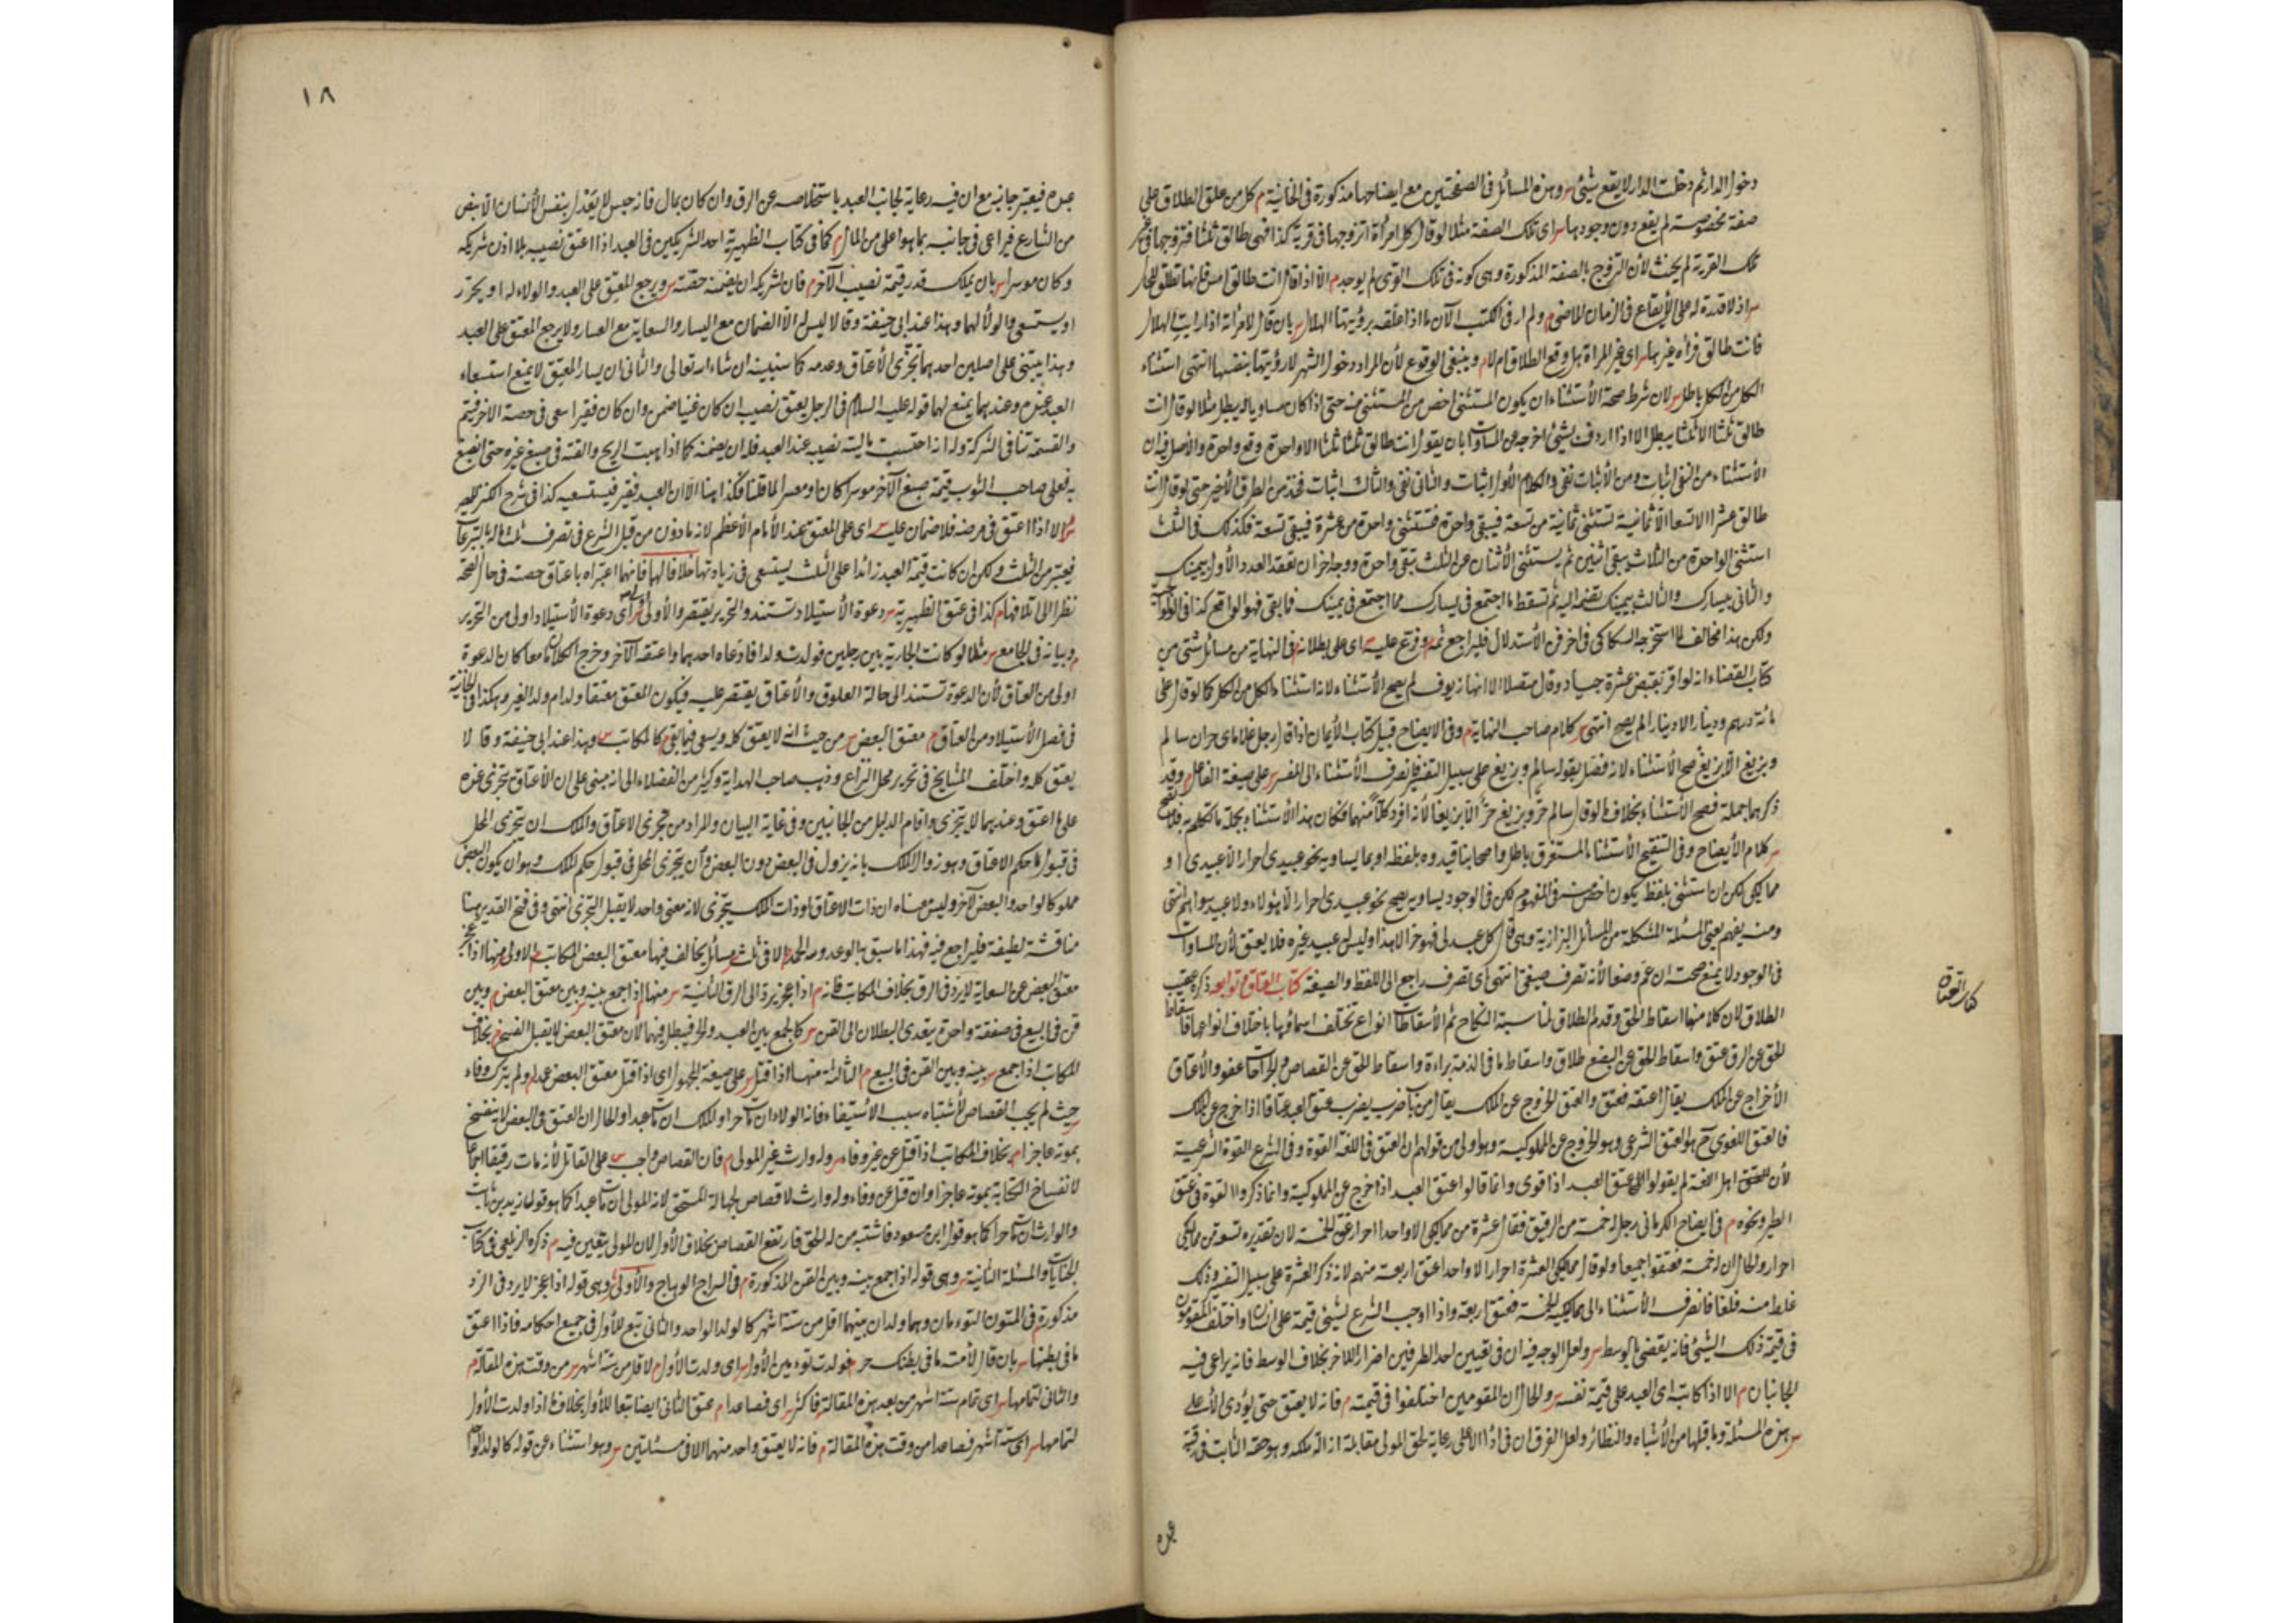 دخول الدار ثم دخلت الدار لا يقع شيئ س وهذه المسائل في الصفحتين مع ايضاحها مذكورة في الخانية م كل من علق الطلاق على
صفة مخصوصة لم يقع دون وجودها س اى تلك الصفة مثلا لو قال كل امرأة اتزوجها في قرية كذا فهى طالق ثلثا فتزوجها في غير
تلك القرية لم يحنث لأن التزوج بالصفة المذكورة وهى كونه في تلك القرى لم يوجد م الا اذا قال انت طالق امس فانها تطلق للحال
س اذ لا قدرة له على الأيقاع في الزمان الماضى م ولم ار في الكتب الآن ما اذا علقه برؤيتها الهلال س بان قال لامرأته اذا رايت الهلال
فانت طالق فرأه غيرها س اى غير المراة هل وقع الطلاق ام لا م وينبغى الوقوع لأن المراد دخول الشهر لا رؤيتها بنفسها انتهى استثناء
الكل من الكل باطل س لان شرط صحة الأستثناء ان يكون المستثنى اخص من المستثنى منه حتى اذا كان مساويا له يبطل مثلا لو قال انت
طالق ثلثا الا ثلثا يبطل الا اذا اردف بشيئ اخرجه عن المساوات بان يقول انت طالق ثلثا ثلثا الا واحدة وقع واحدة والأصل فيه ان
الأستثناء من النفى اثبات ومن الأثبات نفى والكلام الأول اثبات والثانى نفى والثالث اثبات فخذ من الطرق الأخير حتى لو قال انت
طالق عشرا الا تسعا الا ثمانية تستثنى ثمانية من تسعة فيبقى واحدة فتستثنى واحدة من عشرة فيبقى تسعة فكذلك في الثلث
استثنى الواحدة من الثلاث يبقى اثنين ثم يستثنى الأثنان عن الثلث تبقى واحدة ووجه اخر ان تعقد العدد الأول بيمينك
والثانى بيسارك والثالث بيمينك تضمه اليه ثم تسقط ما اجتمع في يسارك مما اجتمع في يمينك فما بقى فهو الواقع كذا في
ولكن هذا مخالف لما استخرجه السكاكى في اخر فن الأستدلال فليراجع ثمه م وفرع عليه س اى على بطلانه م في النهاية من مسائل شتى من
كتاب القضاء انه لو اقر بقبض عشرة جياد وقال متصلا الا انها زيوف لم يصح الأستثناء لانه استثناء الكل من الكل كما لو قال على
مائة درهم ودينار الا دينارا لم يصح انتهى س كلام صاحب النهاية م وفى الايضاح قبيل كتاب الأيمان اذا قال رجل غلاماى حران سالم
وبزيغ الا بزيغ صح الأستثناء لانه فصل بقوله سالم وبزيغ على سبيل التفسير فانصرف الأستثناء الى المفسر س على صيغة الفاعل م وقد
ذكرهما جملة فصح الأستثناء بخلاف ما لو قال سالم حر وبزيغ حر الا بزيغا لأنه افرد كلا منهما فكان هذا الأستثناء بجملة ما تكلم به فلا يصح
س كلام الأيضاح وفى التنقيح الأستثناء المستغرق باطل واصحابنا قيدوه بلفظه او بما يساويه نحو عبيدى احرار الا عبيدى او
مماليكى لكن ان استثنى بلفظ يكون اخص منه في المفهوم لكن في الوجود يساويه يصح نحو عبيدى احرار الا هؤلاء ولا عبيد سواهم انتهى
ومنه يفهم يعنى المسئلة المشكلة من المسائل البزازية وهى قال كل عبد لى فهو حر الا هذا وليس له عبيد غيره فلا يعتق لأن المساوات
في الوجود لا يمنع صحته ان عم وضعا لأنه تصرف صيغى انتهى اى تصرف راجع الى اللفظ والصيغة كتاب العتاق وتوابعه ذكره عقيب
الطلاق لان كلا منهما اسقاط الحق وقدم الطلاق لمناسبة النكاح ثم الأسقاطات انواع تختلف اسماؤها باختلاف انواعها فاسقاط
الحق عن الرق عتق واسقاط الحق عن البضع طلاق واسقاط ما في الذمة براءة واسقاط الحق عن القصاص والجراحات عفو والأعتاق
الأخراج عن الملك يقال اعتقه فعتق والعتق الخروج عن الملك يقال من باب ضرب يضرب عتق العبد عتاقا اذا خرج عن الملك
فالعتق اللغوى ح هو العتق الشرعى وهو الخروج عن المملوكية وهو اولى من قولهم ان العتق في اللغة القوة وفى الشرع القوة الشرعية
لأن اهل اللغة لم يقولوا عتق العبد اذا قوى وانما قالوا عتق العبد اذا خرج عن المملوكية وانما ذكروا القوة في عتق
الطير ونحوه م في ايضاح الكرمانى رجل له خمسة من الرقيق فقال عشرة من مماليكى الا واحدا احرار عتق الخمسة لان تقديره تسعة من مماليكى
احرار والحال ان له خمسة فعتقوا جميعا ولو قال مماليكى العشرة احرار الا واحدا عتق اربعة منهم لانه ذكر العشرة على سبيل التفسير وذلك
غلط منه فلغا فانصرف الأستثناء الى مماليكه الخمسة فعتق اربعة واذا اوجب الشرع لشيئ قيمة على انسان واختلف المقومون
في قيمة ذلك الشيئ فانه يقضى بالوسط س ولعل الوجه فيه ان في تعيين احد الطرفين اضرارا للاخر بخلاف الوسط فانه يراعى فيه
الجانبان م الا اذا كاتبه اى العبد على قيمة نفسه س والحال ان المقومين اختلفوا في قيمته م فانه لا يعتق حتى يؤدى الأعلى
س هذه المسئلة وما قبلها من الأشباه والنظائر ولعل الفرق ان في اداء الأعلى رعاية لحق المولى مقابلة ازالة ملكه وهو حقه الثابت في رقبة
كتاب العتاق
عبده
١٨
عبده فيعتبر جانبه مع ان فيه رعاية لجانب العبد باستخلاصه عن الرق وان كان بمال فانه خسيس لا يعدل بنفس الأنسان الا بنص
من الشارع فيراعى في جانبه بما هو اعلى من المال م كما في كتاب الظهيرية احد الشريكين في العبد اذا اعتق نصيبه بلا اذن شريكه
وكان موسرا س بان يملك قدر قيمة نصيب الآخر م فان لشريكه ان يضمنه حصته س ويرجع المعتق على العبد والولاء له او يحرر
او يستسعى والولاء لهما وهذا عند ابى حنيفة وقالا ليس له الا الضمان مع اليسار والسعاية مع العسار ولا يرجع المعتق على العبد
وهذا يبتنى على اصلين احدهما تجزى الأعتاق وعدمه كما سنبينه ان شاء الله تعالى والثانى ان يسار المعتق لا يمنع استسعاء
العبد عنده وعندهما يمنع لهما قوله عليه السلام في الرجل يعتق نصيبه ان كان غنيا ضمن وان كان فقيرا سعى في حصة الاخر قسم
والقسمة تنافى الشركة وله انه احتبست مالية نصيبه عند العبد فله ان يضمنه كما اذا هبت الريح والقته في صبغ غيره حتى انصبغ
به فعلى صاحب الثوب قيمة صبغ الآخر موسرا كان او معسرا لما قلنا فكذا هنا الا ان العبد فقير فيستسعيه كذا في شرح الكنز
الا اذا اعتق في مرضه فلا ضمان عليه س اى على المعتق عند الأمام الأعظم لانه ماذون من قبل الشرع في تصرف ثلث ماله بالتبرعات
فيعتبر من الثلث ولكن ان كانت قيمة العبد زائدا على الثلث يستسعى في زيادتها خلافا لهما فانهما اعتبراه باعتاق حصته في حال الصحة
نظرا الى اتلافها م كذا في عتق الظهيرية س دعوة الأستيلاد تستند والتحرير يقتصر والأولى اولى س اى دعوة الأستيلاد اولى من التحرير
م وبيانه في الجامع س مثلا لو كانت الجارية بين رجلين فولدت ولدا فادعاه احدهما واعتقه الآخر وخرج الكلامان معا كان الدعوة
اولى من العتاق لأن الدعوة تستند الى حالة العلوق والأعتاق يقتصر عليه فيكون المعتق معتقا ولد ام ولد الغير وهكذا في الخانية
في فصل الأستيلاد من العتاق م معتق البعض س من حيث انه لا يعتق كله ويسعى فيما بقى م كالمكاتب س وهذا عند ابى حنيفة وقالا لا
يعتق كله واختلف المشايخ في تحرير محل النزاع وذهب صاحب الهداية وكثير من الفضلاء الى انه مبنى على ان الأعتاق يتجزى عنده
على ما اعتق وعندهما لا يتجزى واقام الدليل من الجانبين وفى غاية البيان والمراد من تجزى الاعتاق والملك ان يتجزى المحل
في قبول حكم الاعتاق وهو زوال الملك بانه يزول في البعض دون البعض وان يتجزى المحل في قبول حكم الملك وهو ان يكون البعض
مملوكا لواحد والبعض لآخر وليس معناه ان ذات الاعتاق او ذات الملك يتجزى لانه معنى واحد لا يقبل التجزى انتهى وفى فتح القدير هنا
مناقشة لطيفة فليراجع فيه فهذا ما سبق به الوعد ولله الحمد م الا في ثلث س مسائل يخالف فيها معتق البعض المكاتب م الاولى س منها اذا عجز
معتق البعض عن السعاية لا يرد في الرق بخلاف المكاتب فانه م اذا عجز يرد الى الرق الثانية س منها م اذا جمع بينه س وبين معتق البعض م وبين
قن في البيع في صفقة واحدة يتعدى البطلان الى القن س كالجمع بين العبد والحر فيبطل فيهما لان معتق البعض لا يقبل الفسخ م بخلاف
المكاتب اذا جمع س بينه وبين القن في البيع م الثالثة س منها م اذا قتل س على صيغة المجهول اى اذا قتل معتق البعض عمدا م ولم يترك وفاء
حيث لم يجب القصاص لأشتباه سبب الأستيفاء فانه الولاء ان مات حرا والملك ان مات عبدا والحال ان العتق في البعض لا ينفسخ
بموته عاجزا م بخلاف المكاتب اذا قتل عن غير وفاء س وله وارث غير المولى م فان القصاص واجب س على القاتل لأنه مات رقيقا
لانفساخ الكتابة بموته عاجزا وان قتل عن وفاء وله وارث لا قصاص لجهالة المستحق لانه المولى ان مات عبدا كما هو قول زيد بن ثابت
والوارث ان مات حرا كما هو قول ابن مسعود فاشتبه من له الحق فارتفع القصاص بخلاف الأول لان المولى يتعين فيه م ذكره الزيلعى في كتاب
الجنايات والمسئلة الثانية س وهى قوله اذا جمع بينه وبين القن المذكورة م في السراج الوهاج والأولى س وهى قوله اذا عجز لا يرد في الرق
مذكورة م في المتون التوءمان وهما ولدان بينهما اقل من ستة اشهر كالولد الواحد والثانى تبع للأول في جميع احكامه فاذا اعتق
ما في بطنها س بان قال لأمته ما في بطنك حر م فولدت توءمين الأول س اى ولدت الأول م لاقل من ستة اشهر س من وقت هذه المقالة م
والثانى لتمامها س اى تمام ستة اشهر من بعد هذه المقالة م فاكثر س اى فصاعدا م عتق الثانى ايضا تبعا للأول بخلاف ما اذا ولدت الأول
لتمامها س اى ستة اشهر فصاعدا من وقت هذه المقالة م فانه لا يعتق واحد منهما الا في مسئلتين س وهو استثناء عن قوله كالولد الواحد